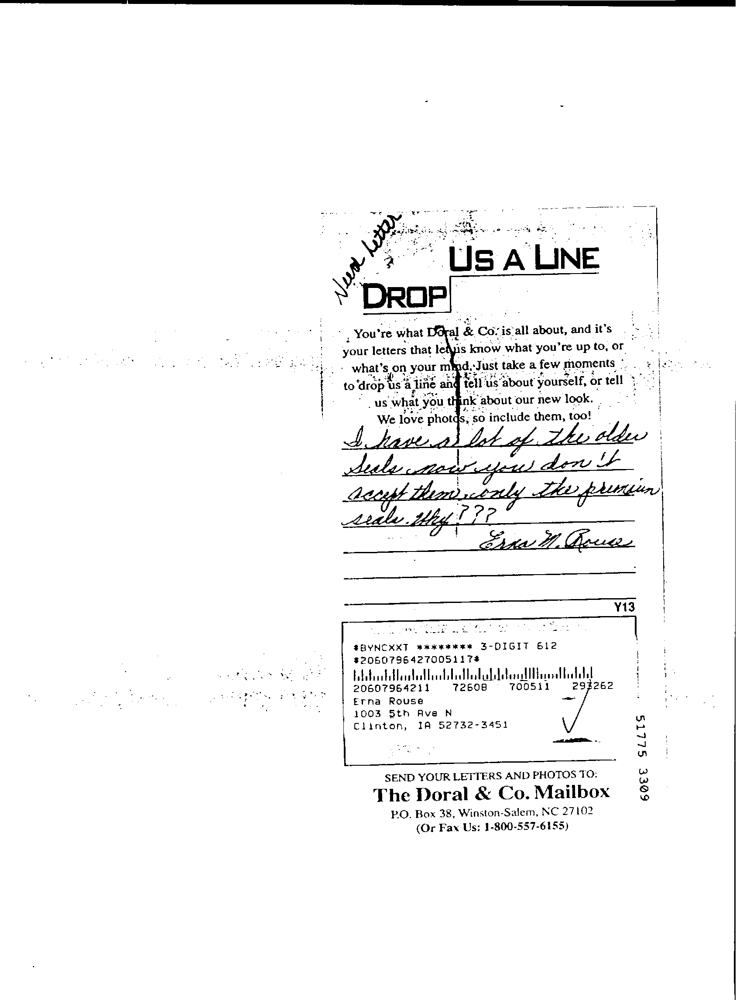 Need Letter
DROP US A LINE
You're what Doral & Co. is all about, and it's
your letters that let us know what you're up to, or
what's on your mind. Just take a few moments
to drop us a line and tell us about yourself, or tell
us what you think about our new look.
We love photos, so include them, too!
I have a lot of the older
Seals now you don't
accept them, only the premiun
seals. Why???
Erna M. Rouse
Y13
#BYNCXXT ******** 3-DIGIT 612
#2060796427005117#
20607964211 72608 700511 293262
Erna Rouse
1003 5th Ave N
Clinton, IA 52732-3451
SEND YOUR LETTERS AND PHOTOS TO:
The Doral & Co. Mailbox
P.O. Box 38, Winston-Salem, NC 27102
(Or Fax Us: 1-800-557-6155)
51775 3309